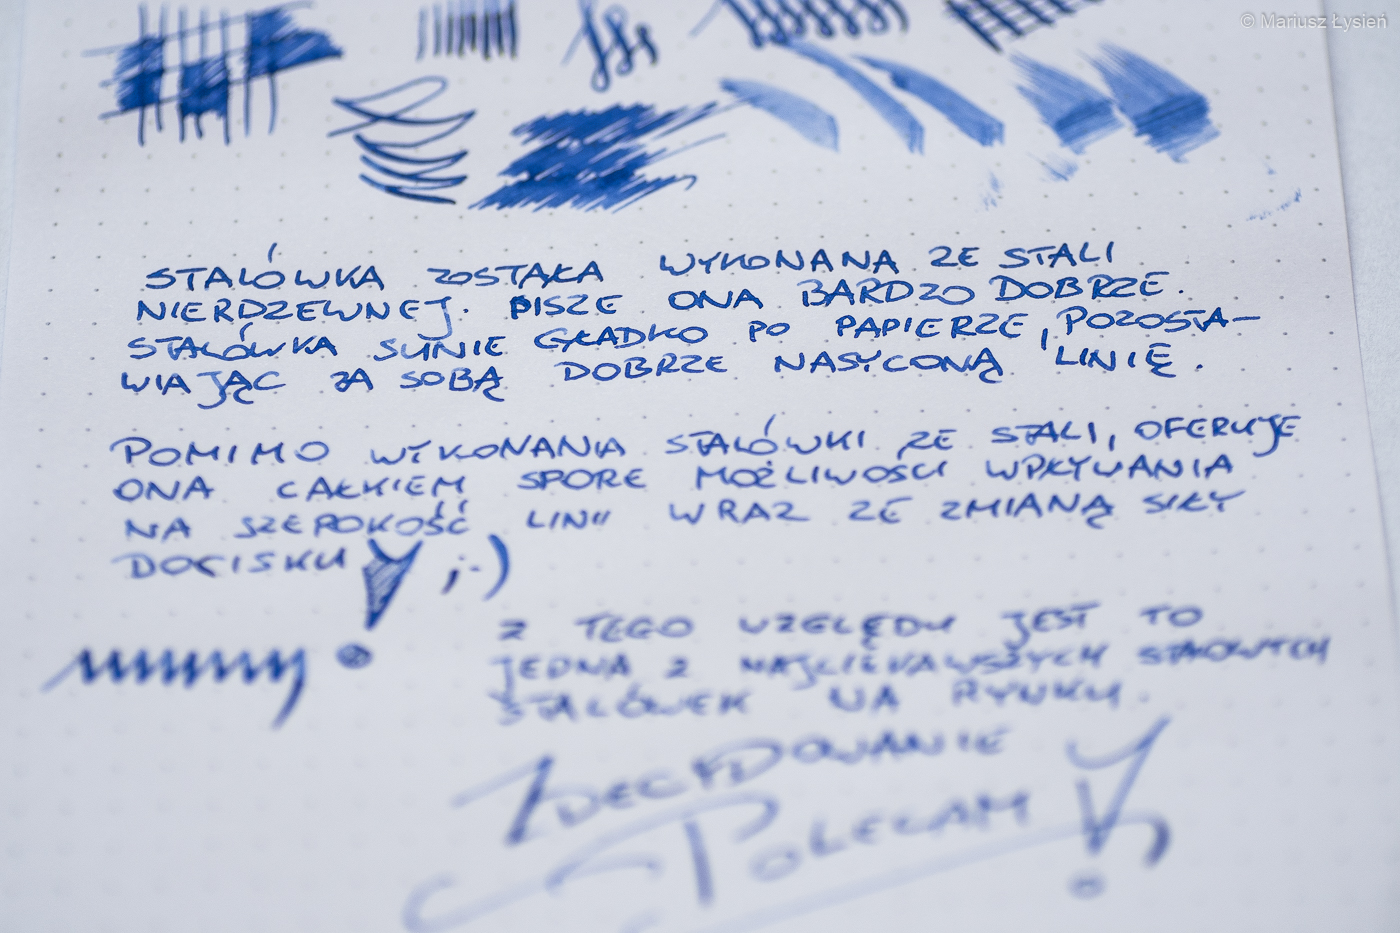 © Mariusz Łysień
STALÓWKA ZOSTAŁA WYKONANA ZE STALI
NIERDZEWNEJ. PISZE ONA BARDZO DOBRZE.
STALÓWKA SUNIE GŁADKO PO PAPIERZE, POZOSTA-
WIAJĄC ZA SOBĄ DOBRZE NASYCONĄ LINIĘ.
POMIMO WYKONANIA STALÓWKI ZE STALI, OFERUJE
ONA CAŁKIEM SPORE MOŻLIWOŚCI WPŁYWANIA
NA SZEROKOŚĆ LINII WRAZ ZE ZMIANĄ SIŁY
DOCISKU ! ;-)
Z TEGO WZGLĘDU JEST TO
JEDNA Z NAJCIEKAWSZYCH STALOWYCH
STALÓWEK NA RYNKU.
ZDECYDOWANIE
POLECAM !